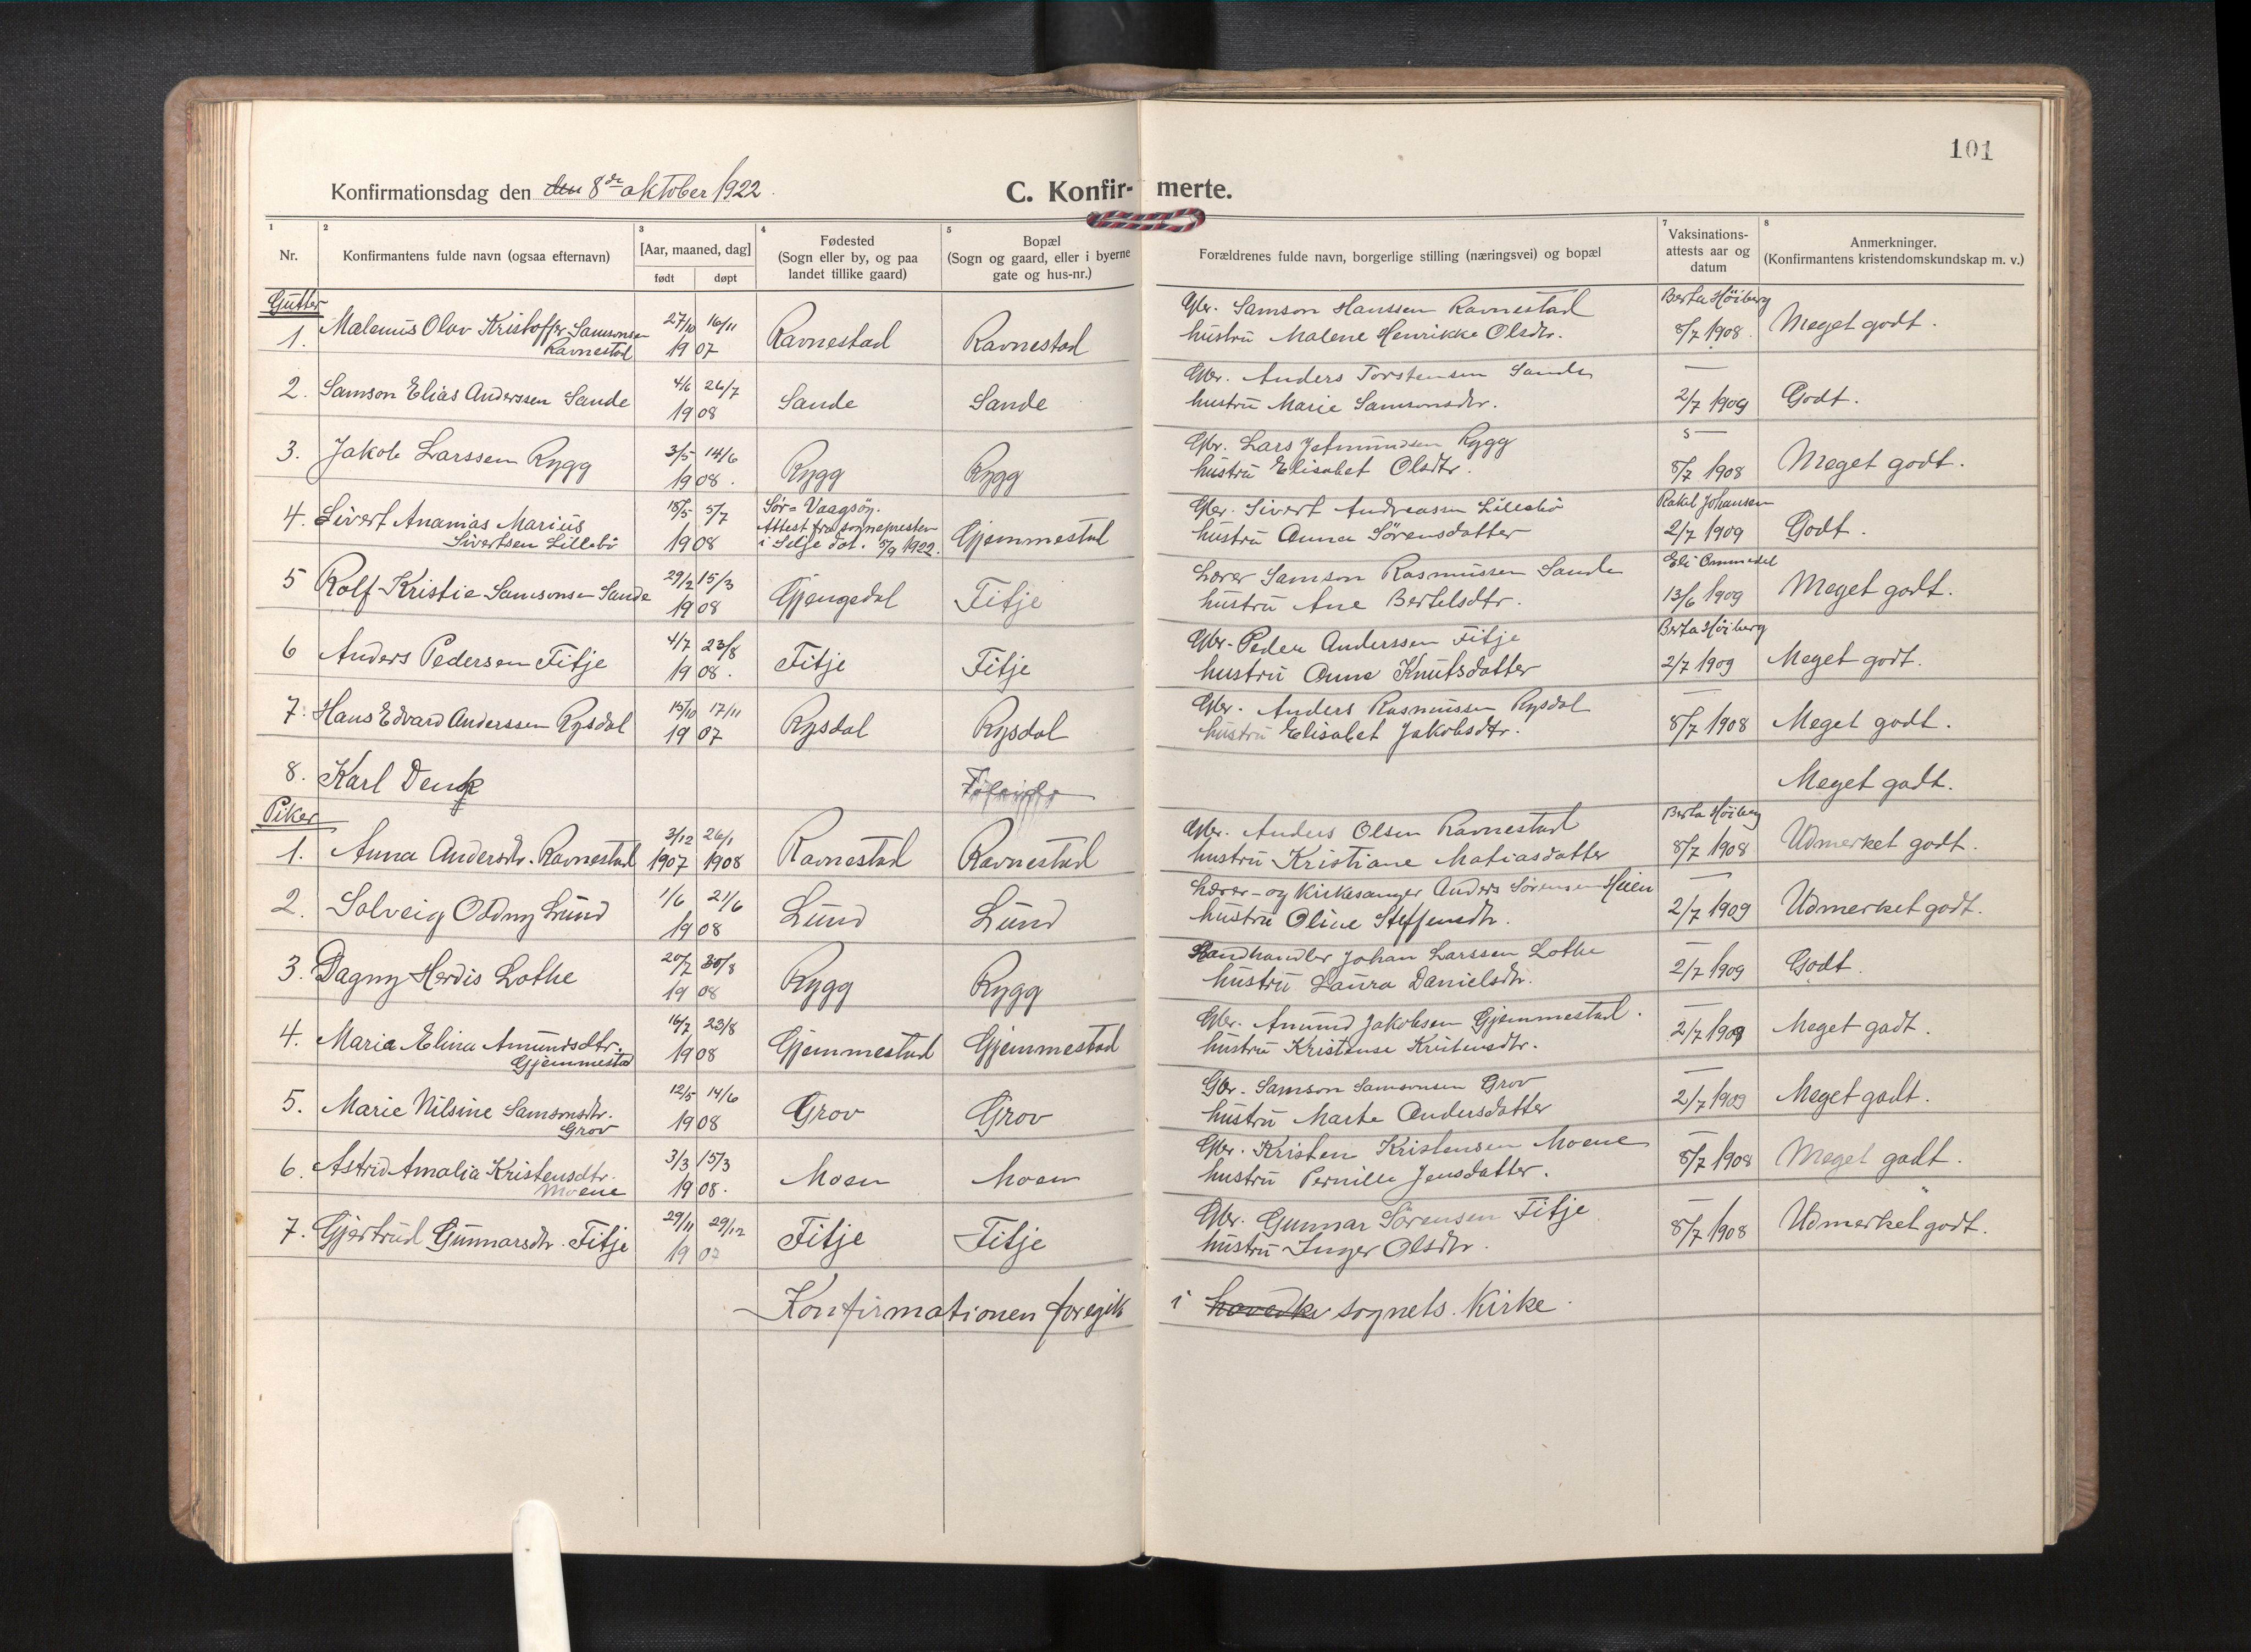 101
Konfirmationsdag den den 8de oktober 1922.
C. Konfir- merte.
1 2 3 4 5 7 8
Nr.
Konfirmantens fulde navn (ogsaa efternavn)
[Aar, maaned, dag]
født døpt
Fødested
(Sogn eller by, og paa
landet tillike gaard)
Bopæl
(Sogn og gaard, eller i byerne
gate og hus-nr.)
Forældrenes fulde navn, borgerlige stilling (næringsvei) og bopæl
Vaksinations-
attests aar og
datum
Anmerkninger.
(Konfirmantens kristendomskundskap m. v.)
Gutter
1. Malenius Olav Kristoffer Samsonsen 27/10 16/11 Ravnestad Ravnestad Gbr. Samson Hanssen Ravnestad Berta Höiberg Meget godt.
Ravnestad 19 07 hustru Malene Henrikke Olsdtr. 8/7 1908.
2. Samson Elias Anderssen Sande 4/6 26/7 Sande Sande Gbr. Anders Torstensen Sande — Godt.
19 08 hustru Marie Samsonsdtr. 2/7 1909
3. Jakob Larssen Rygg 3/5 14/6 Rygg Rygg Gbr. Lars Jetmundsen Rygg — Meget godt.
19 08. hustru Elisabet Olsdtr. 8/7 1908
4. Sivert Ananias Marius 18/5 5/7 Sør-Vaagsöy. Gjemmestad Gbr. Sivert Andreassen Lillebö Rakel Johansen Godt.
Sivertsen Lillebö 1908 Attest fra sognepresten hustru Anna Sörensdatter 2/7 1909
i Selje dat. 5/9 1922.
5 Rolf Kristie Samsonsen Sande 29/2 15/3 Gjengedal Fitje Lærer Samson Rasmussen Sande Eli Ommedal Meget godt.
19 08 hustru Ane Bertelsdtr. 13/6 1909
6 Anders Pedersen Fitje 4/7 23/8 Fitje Fitje Gbr. Peder Anderssen Fitje Berta Höiberg Meget godt.
19 08. hustru Anna Knutsdatter 2/7 1909
7. Hans Edvard Anderssen Rysdal 15/10 17/11 Rysdal Rysdal Gbr. Anders Rasmussen Rysdal — Meget godt.
19 07 hustru Elisabet Jakobsdtr. 8/7 1908
8. Karl Denk Meget godt.
Piker
1. Anna Andersdtr. Ravnestad 3/12 26/1 Ravnestad Ravnestad Gbr. Anders Olsen Ravnestad Berta Höiberg Udmerket godt.
1907 1908 hustru Kristiane Matiasdatter 8/7 1908
2. Solveig Oddny Lund 1/6 21/6 Lund Lund Lærer- og Kirkesanger Anders Sörensen Heien — Udmerket godt.
19 08 hustru Oline Steffensdtr. 2/7 1909
3. Dagny Herdis Lothe 20/7 30/8 Rygg Rygg Landhandler Johan Larssen Lothe — Godt.
19 08 hustru Laura Danielsdtr. 2/7 1909
4. Maria Elina Amundsdtr. 16/7 23/8 Gjemmestad Gjemmestad Gbr. Amund Jakobsen Gjemmestad. — Meget godt.
Gjemmestad 19 08 hustru Kristense Kristensdtr. 2/7 1909
5. Marie Nilsine Samsonsdtr. 12/5 14/6 Grov Grov Gbr. Samson Samsonsen Grov — Meget godt.
Grov 19 08 hustru Marte Andersdatter 2/7 1909
6. Astrid Amalia Kristensdtr. 3/3 15/3 Moen Moen Gbr. Kristen Kristensen Moene — Meget godt.
Moene 19 08. hustru Pernille Jensdatter. 8/7 1908
7. Gjertrud Gunnarsdtr. Fitje 29/11 29/12 Fitje Fitje Gbr. Gunnar Sörensen Fitje — Udmerket godt.
19 07 hustru Inger Olsdtr. 8/7 1908
Konfirmationen foregik i hovedki sognets Kirke.